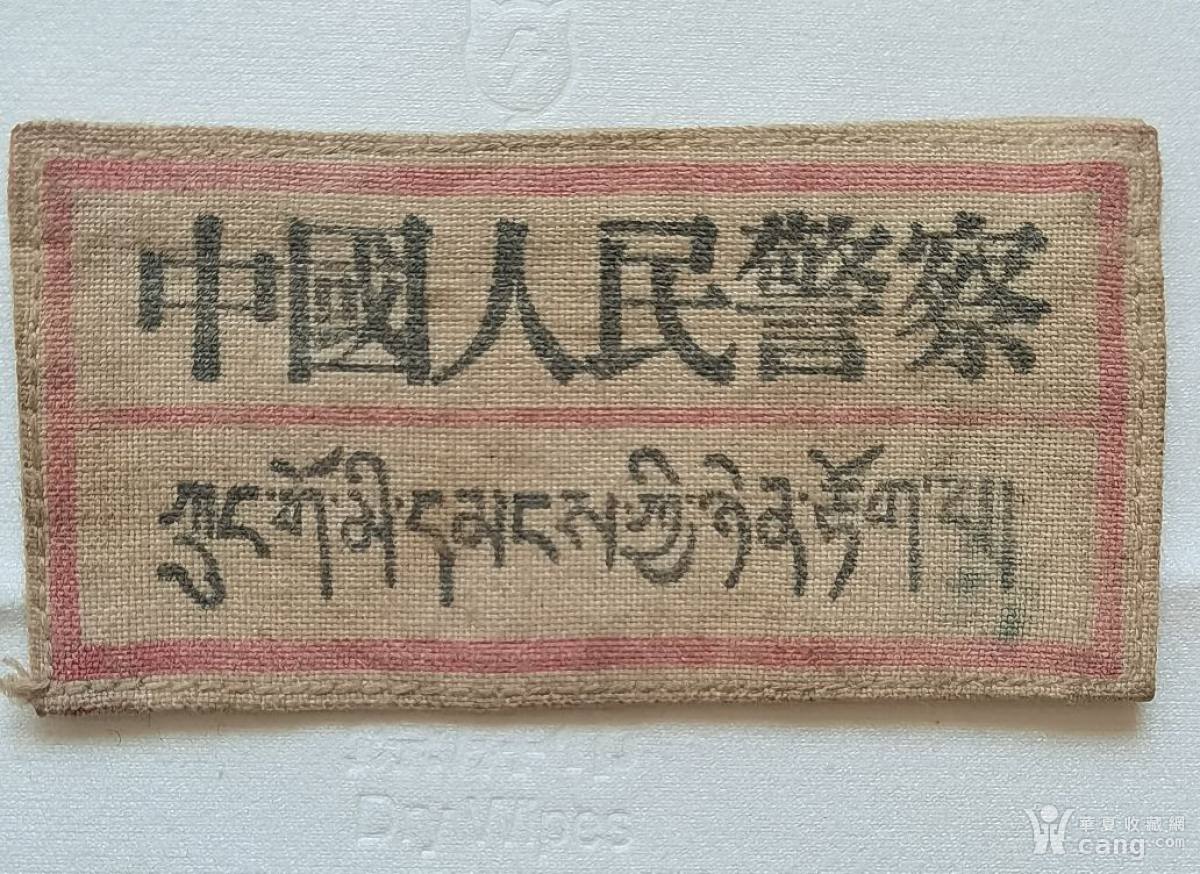 中國人民警察
ཀྲུང་གོ་མི་དམངས་ཀྱི་ཉེན་རྟོག་པ།
Dry Wipes
華夏·收藏網
cang.com